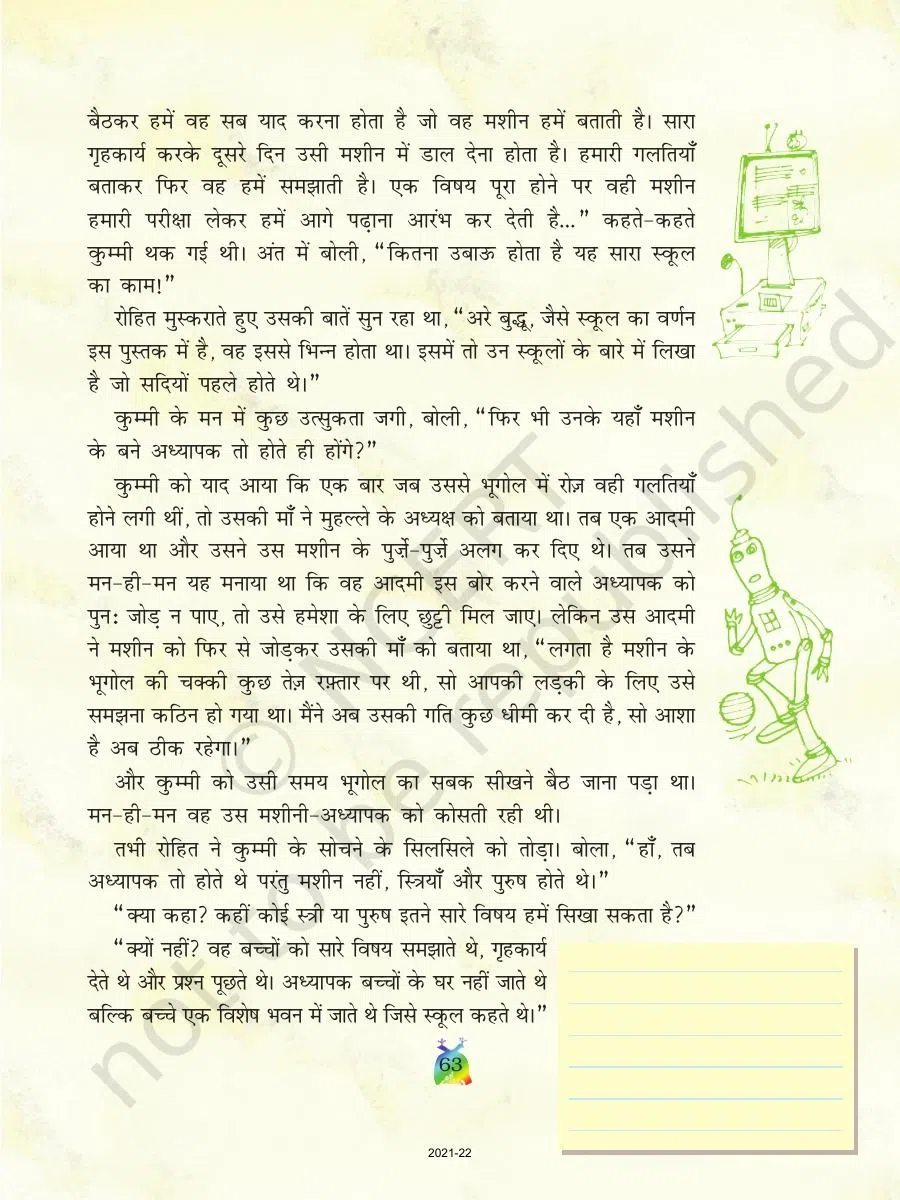 बैठकर हमें वह सब याद करना होता है जो वह मशीन हमें बताती है। सारा
गृहकार्य करके दूसरे दिन उसी मशीन में डाल देना होता है। हमारी गलतियाँ
बताकर फिर वह हमें समझाती है। एक विषय पूरा होने पर वही मशीन
हमारी परीक्षा लेकर हमें आगे पढ़ाना आरंभ कर देती है...” कहते-कहते
कुम्मी थक गई थी। अंत में बोली, “कितना उबाऊ होता है यह सारा स्कूल
का काम!”
रोहित मुस्कराते हुए उसकी बातें सुन रहा था, “अरे बुद्धू, जैसे स्कूल का वर्णन
इस पुस्तक में है, वह इससे भिन्न होता था। इसमें तो उन स्कूलों के बारे में लिखा
है जो सदियों पहले होते थे।”
कुम्मी के मन में कुछ उत्सुकता जगी, बोली, “फिर भी उनके यहाँ मशीन
के बने अध्यापक तो होते ही होंगे?”
कुम्मी को याद आया कि एक बार जब उससे भूगोल में रोज़ वही गलतियाँ
होने लगी थीं, तो उसकी माँ ने मुहल्ले के अध्यक्ष को बताया था। तब एक आदमी
आया था और उसने उस मशीन के पुर्ज़े-पुर्ज़े अलग कर दिए थे। तब उसने
मन-ही-मन यह मनाया था कि वह आदमी इस बोर करने वाले अध्यापक को
पुन: जोड़ न पाए, तो उसे हमेशा के लिए छुट्टी मिल जाए। लेकिन उस आदमी
ने मशीन को फिर से जोड़कर उसकी माँ को बताया था, “लगता है मशीन के
भूगोल की चक्की कुछ तेज़ रफ़्तार पर थी, सो आपकी लड़की के लिए उसे
समझना कठिन हो गया था। मैंने अब उसकी गति कुछ धीमी कर दी है, सो आशा
है अब ठीक रहेगा।”
और कुम्मी को उसी समय भूगोल का सबक सीखने बैठ जाना पड़ा था।
मन-ही-मन वह उस मशीनी-अध्यापक को कोसती रही थी।
तभी रोहित ने कुम्मी के सोचने के सिलसिले को तोड़ा। बोला, “हाँ, तब
अध्यापक तो होते थे परंतु मशीन नहीं, स्त्रियाँ और पुरुष होते थे।”
“क्या कहा? कहीं कोई स्त्री या पुरुष इतने सारे विषय हमें सिखा सकता है?”
“क्यों नहीं? वह बच्चों को सारे विषय समझाते थे, गृहकार्य
देते थे और प्रश्न पूछते थे। अध्यापक बच्चों के घर नहीं जाते थे
बल्कि बच्चे एक विशेष भवन में जाते थे जिसे स्कूल कहते थे।”
63
2021-22
© NCERT
not to be republished